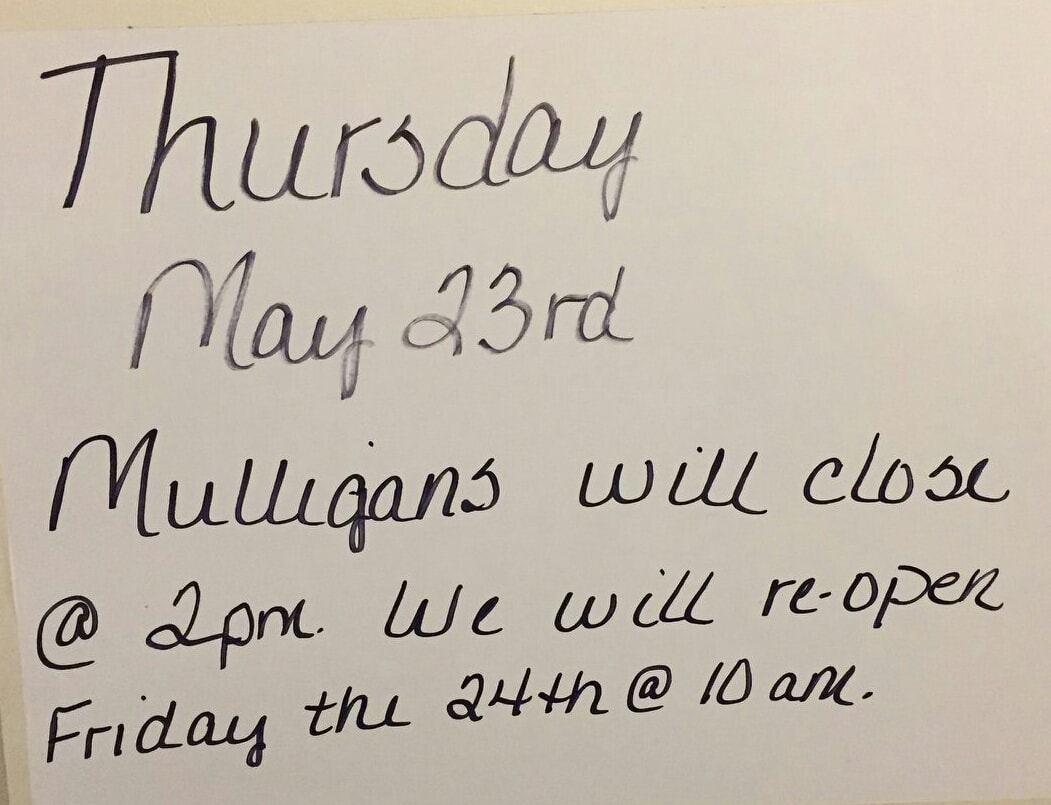 Thursday
May 23rd
Mulligans will close
@ 2pm. We will re-open
Friday the 24th @ 10 am.